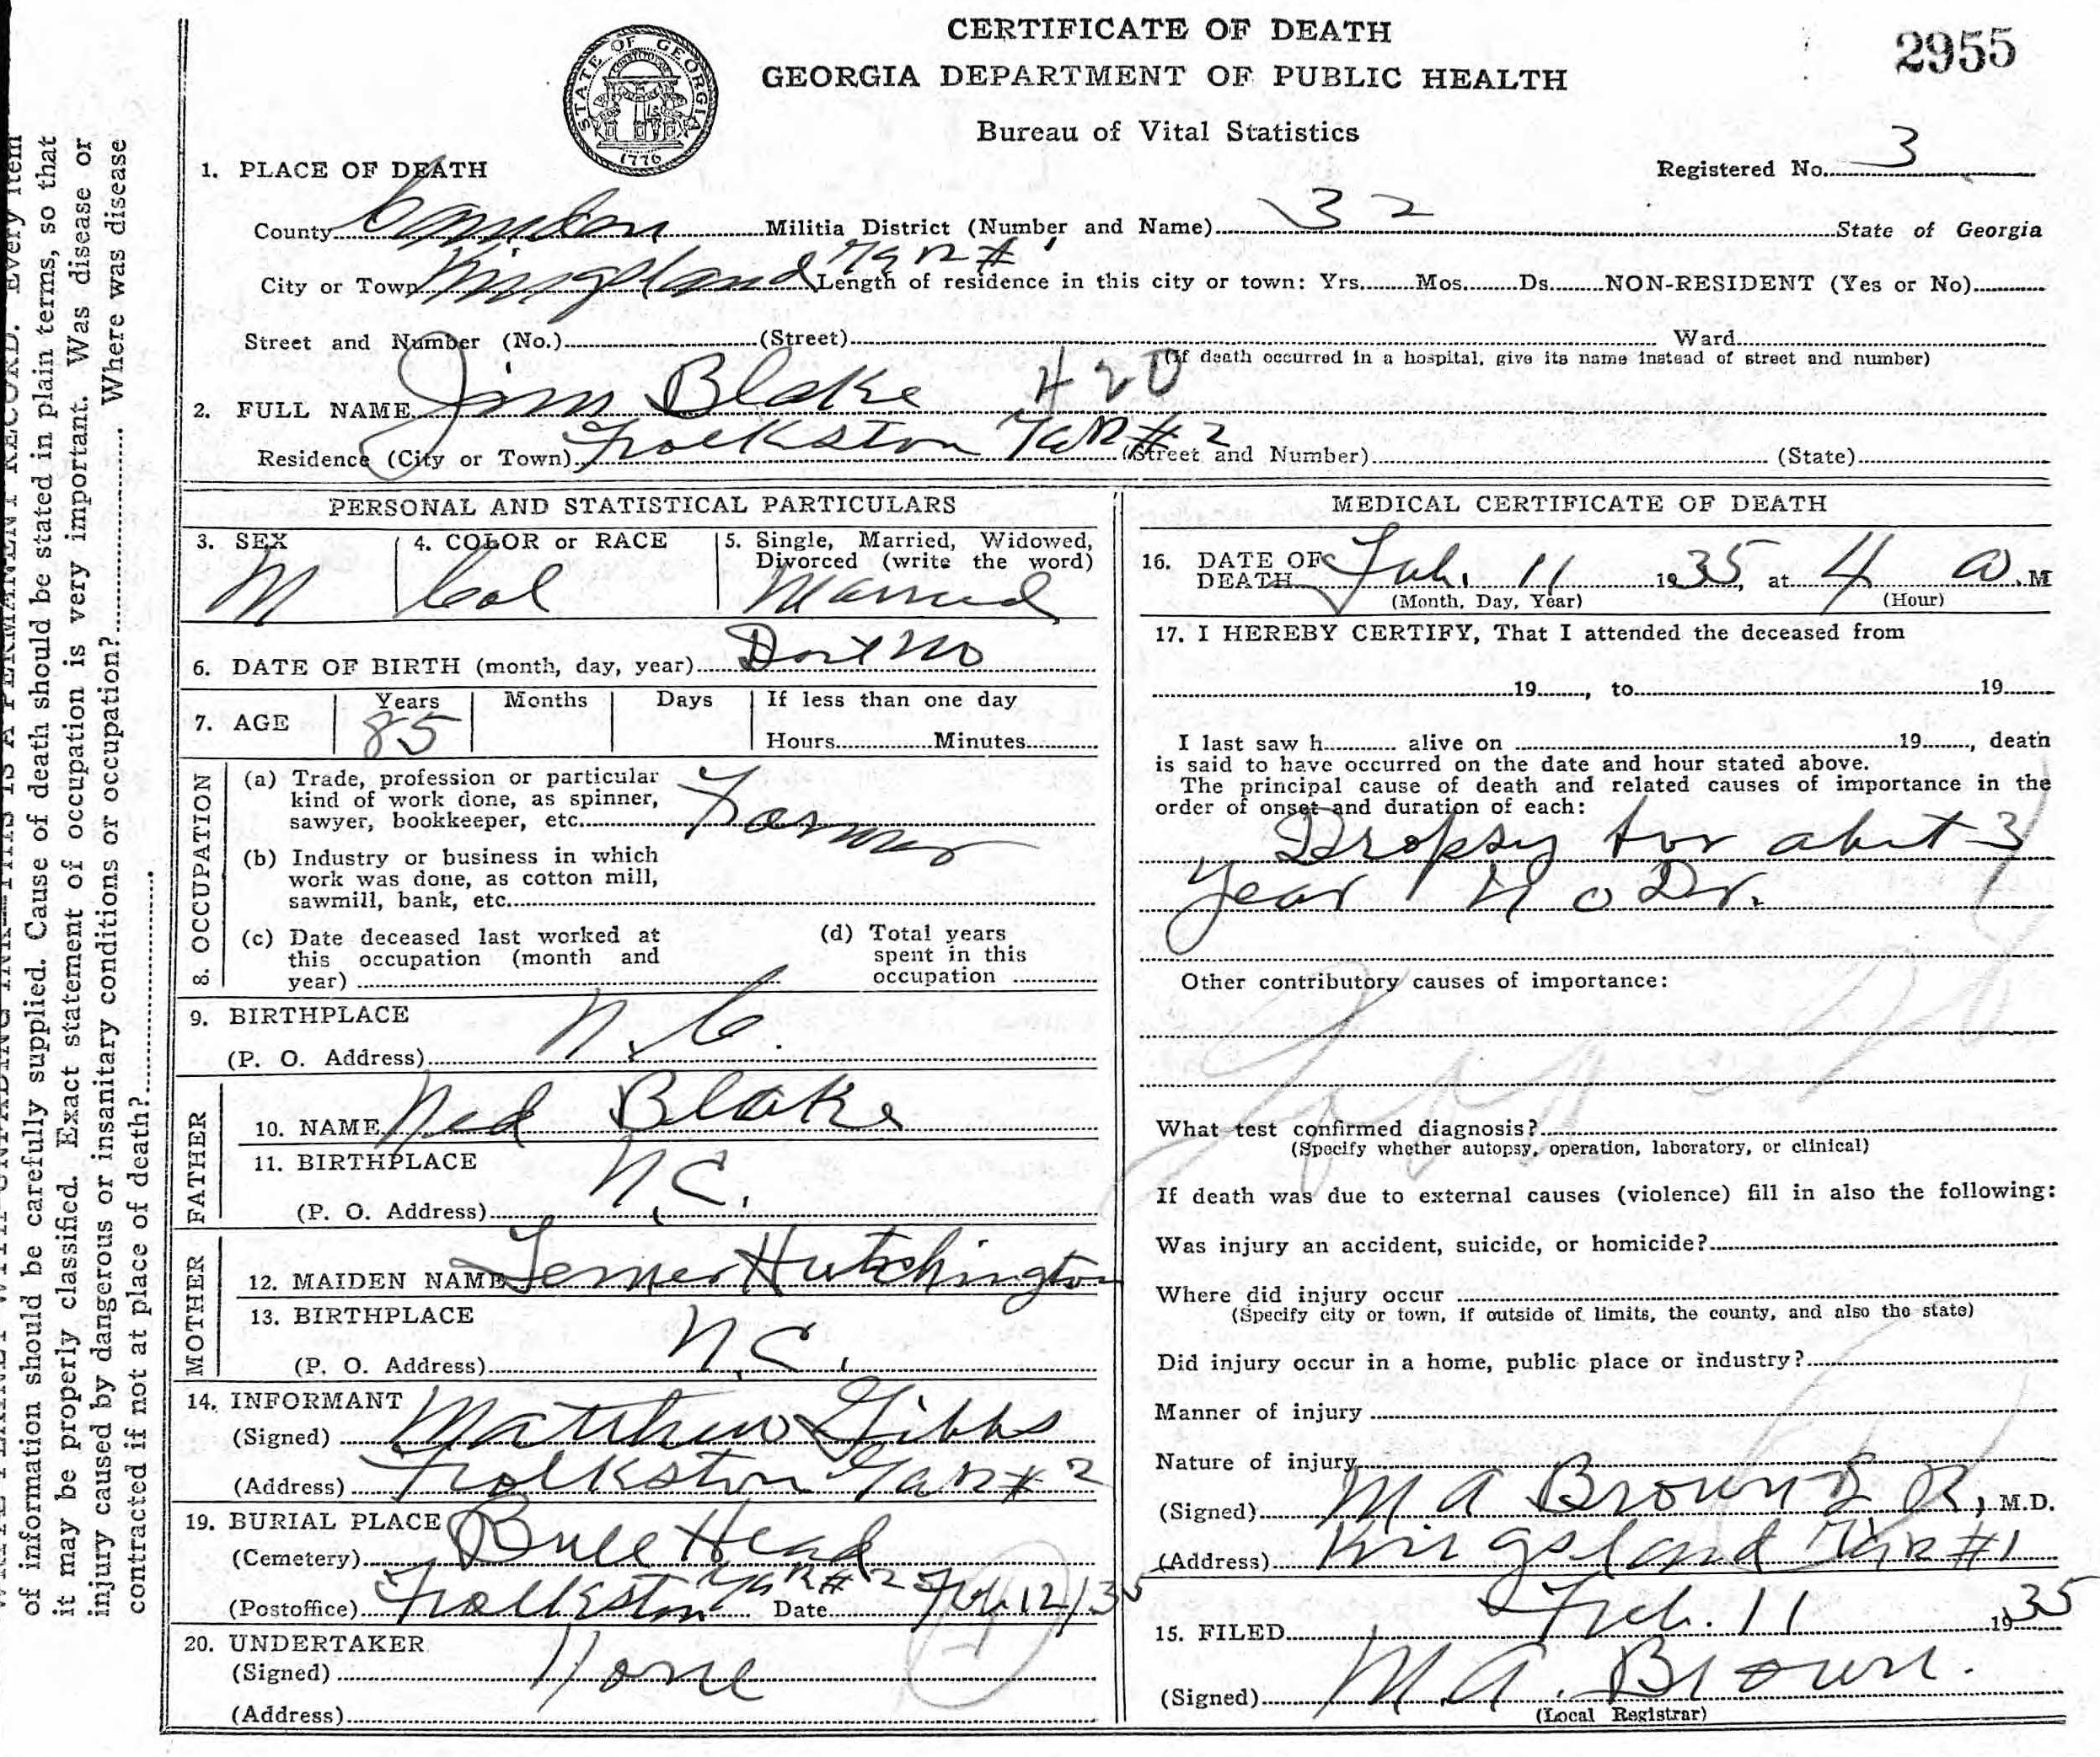 CERTIFICATE OF DEATH
GEORGIA DEPARTMENT OF PUBLIC HEALTH
Bureau of Vital Statistics
2955
STATE OF GEORGIA
CONSTITUTION
1776
Registered No. 3
1. PLACE OF DEATH
County Camden Militia District (Number and Name) 32 State of Georgia
City or Town Kingsland Ga R #1 Length of residence in this city or town: Yrs. Mos. Ds. NON-RESIDENT (Yes or No)
Street and Number (No.) (Street) Ward
(If death occurred in a hospital, give its name instead of street and number)
2. FULL NAME Jim Blake 420
Residence (City or Town) Folkston Ga R # 2 (Street and Number) (State)
PERSONAL AND STATISTICAL PARTICULARS
3. SEX 4. COLOR or RACE 5. Single, Married, Widowed,
Divorced (write the word)
M Col Married
6. DATE OF BIRTH (month, day, year) Dont no
7. AGE Years Months Days If less than one day
85 Hours Minutes
8. OCCUPATION
(a) Trade, profession or particular
kind of work done, as spinner,
sawyer, bookkeeper, etc. Farmer
(b) Industry or business in which
work was done, as cotton mill,
sawmill, bank, etc.
(c) Date deceased last worked at (d) Total years
this occupation (month and spent in this
year) occupation
9. BIRTHPLACE
(P. O. Address) N. C.
FATHER
10. NAME Ned Blake
11. BIRTHPLACE
(P. O. Address) N.C.
MOTHER
12. MAIDEN NAME Hutchington
13. BIRTHPLACE
(P. O. Address) N.C.
14. INFORMANT
(Signed) Matthew Gibbs
(Address) Folkston Ga R # 2
19. BURIAL PLACE
(Cemetery) Bull Head
(Postoffice) Folkston Ga R # 2 Date Feb 12/35
20. UNDERTAKER
(Signed) None
(Address)
MEDICAL CERTIFICATE OF DEATH
16. DATE OF
DEATH Feb. 11 1935, at 4 a.M
(Month, Day, Year) (Hour)
17. I HEREBY CERTIFY, That I attended the deceased from
19 , to 19
I last saw h alive on 19 , death
is said to have occurred on the date and hour stated above.
The principal cause of death and related causes of importance in the
order of onset and duration of each:
Dropsy for abut 3
year No Dr.
Other contributory causes of importance:
What test confirmed diagnosis?
(Specify whether autopsy, operation, laboratory, or clinical)
If death was due to external causes (violence) fill in also the following:
Was injury an accident, suicide, or homicide?
Where did injury occur
(Specify city or town, if outside of limits, the county, and also the state)
Did injury occur in a home, public place or industry?
Manner of injury
Nature of injury
(Signed) M A Brown L R, M.D.
(Address) Kingsland Ga R #1
15. FILED Feb. 11 1935
(Signed) M. A. Brown.
(Local Registrar)
of information should be carefully supplied. Cause of death should be stated in plain terms, so that
it may be properly classified. Exact statement of occupation is very important. Was disease or
injury caused by dangerous or insanitary conditions or occupation? Where was disease
contracted if not at place of death?